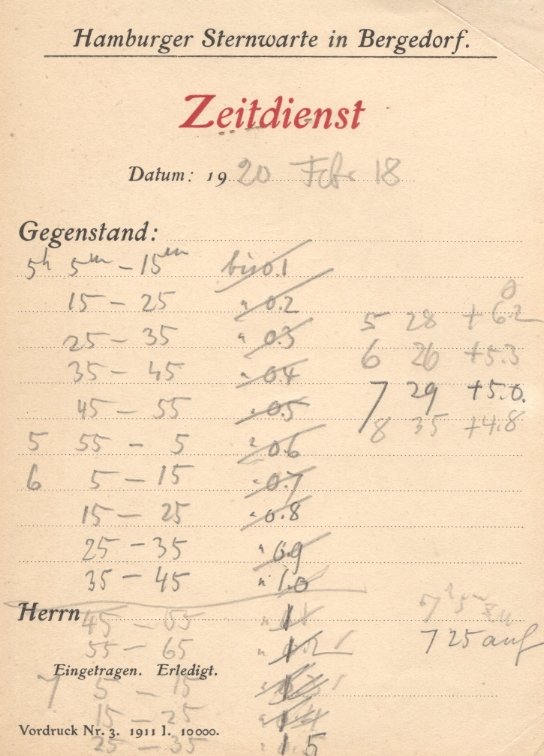 Hamburger Sternwarte in Bergedorf.
Zeitdienst
Datum: 1920 Feb. 18
Gegenstand:
5h 5m – 15m bis 0.1
15 – 25 " 0.2
5 28 +6.2
25 – 35 " 0.3
6 26 +5.3
35 – 45 " 0.4
7 29 +5.0.
45 – 55 " 0.5
8 35 +4.8
5 55 – 5 " 0.6
6 5 – 15 " 0.7
15 – 25 " 0.8
25 – 35 " 0.9
35 – 45 " 1.0
Herrn
45 – 55 " 1.1
7h 5m zu
55 – 65 " 1.2
7 25 auf
Eingetragen. Erledigt.
7 5 – 15
15 – 25 " 1.4
Vordruck Nr. 3. 1911 I. 10000.
25 – 35 1.5